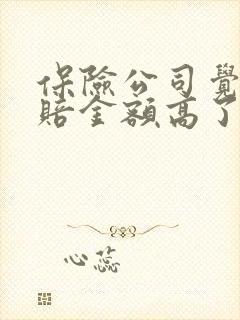 保險公司覺
賠金額高了
心蕊